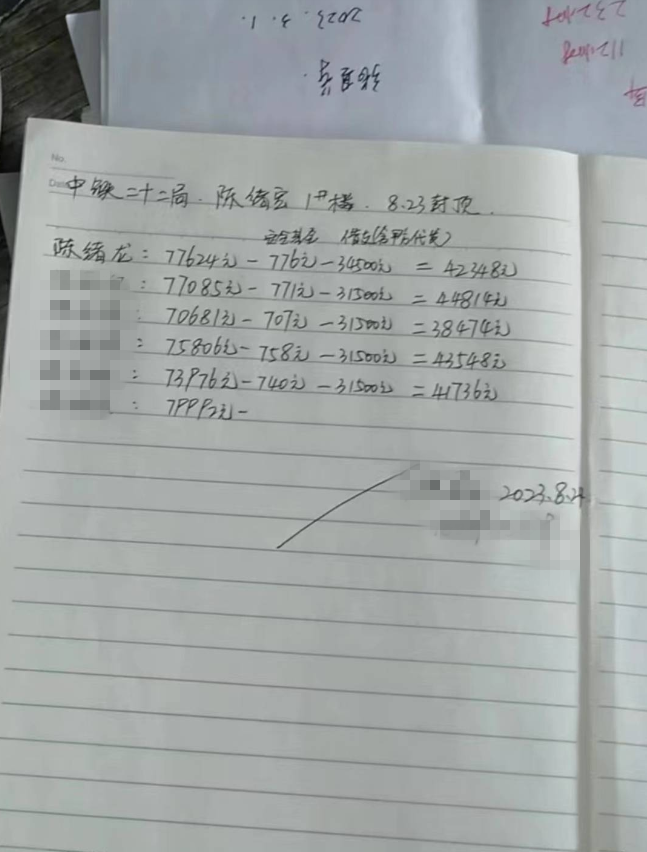 2023.3.1.
No.
Date
中铁二十二局. 陈绪宏 1#楼. 8.23封顶.
安全基金 借支(含甲方代发)
陈绪龙: 77624元-776元-34500元=42348元
: 77085元-771元-31500元=44814元
: 70681元-707元-31500元=38474元
: 75806元-758元-31500元=43548元
: 73976元-740元-31500元=41736元
: 79992元-
2023.8.24